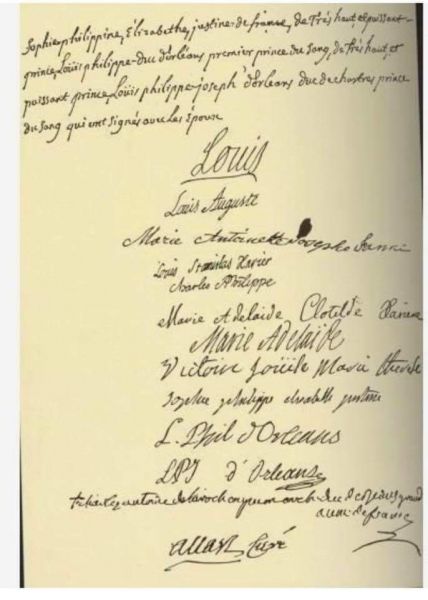 Sophie philippine, Élizabethe, justine de france, de Très haut et puissant
prince Loüis philippe duc d'orléans premier prince du Sang, de Très haut et
puissant prince Loüis philippe joseph d'orleans duc de chartres prince
du Sang qui ont signés avec Les Époux
Louis
Louis Auguste
Marie Antoinette Josepha Jeanne
Louis Stanislas Xavier
Charles Philippe
Marie Adelaide Clotilde Xaviere
Marie Adelaïde
Victoire Loüise Marie therese
Sophie philippe elisabeth justine
L. Phil d'Orleans
LPJ d'Orleans
+ charles antoine de la roche aymon arch. duc de
aum. de france
allart Curé